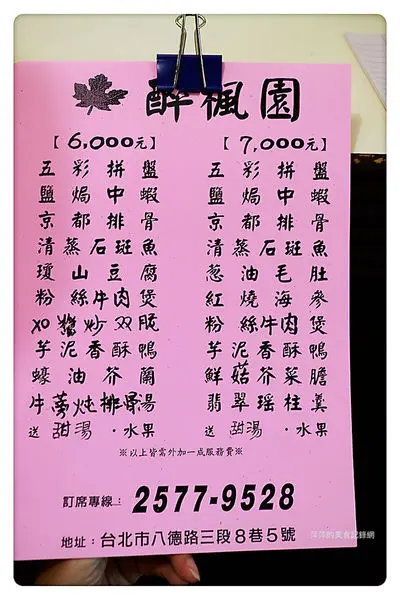 醉楓園
【6,000元】 【7,000元】
五彩拼盤 五彩拼盤
鹽焗中蝦 鹽焗中蝦
京都排骨 京都排骨
清蒸石斑魚 清蒸石斑魚
瓊山豆腐 蔥油毛肚
粉絲牛肉煲 紅燒海參
XO醬炒双脆 粉絲牛肉煲
芋泥香酥鴨 芋泥香酥鴨
蠔油芥蘭 鮮菇芥菜膽
牛蒡炖排骨湯 翡翠瑶柱羹
送 甜湯 · 水果 送 甜湯 · 水果
※以上皆需外加一成服務費※
訂席專線: 2577-9528
地址: 台北市八德路三段8巷5號
萍萍的美食記錄網